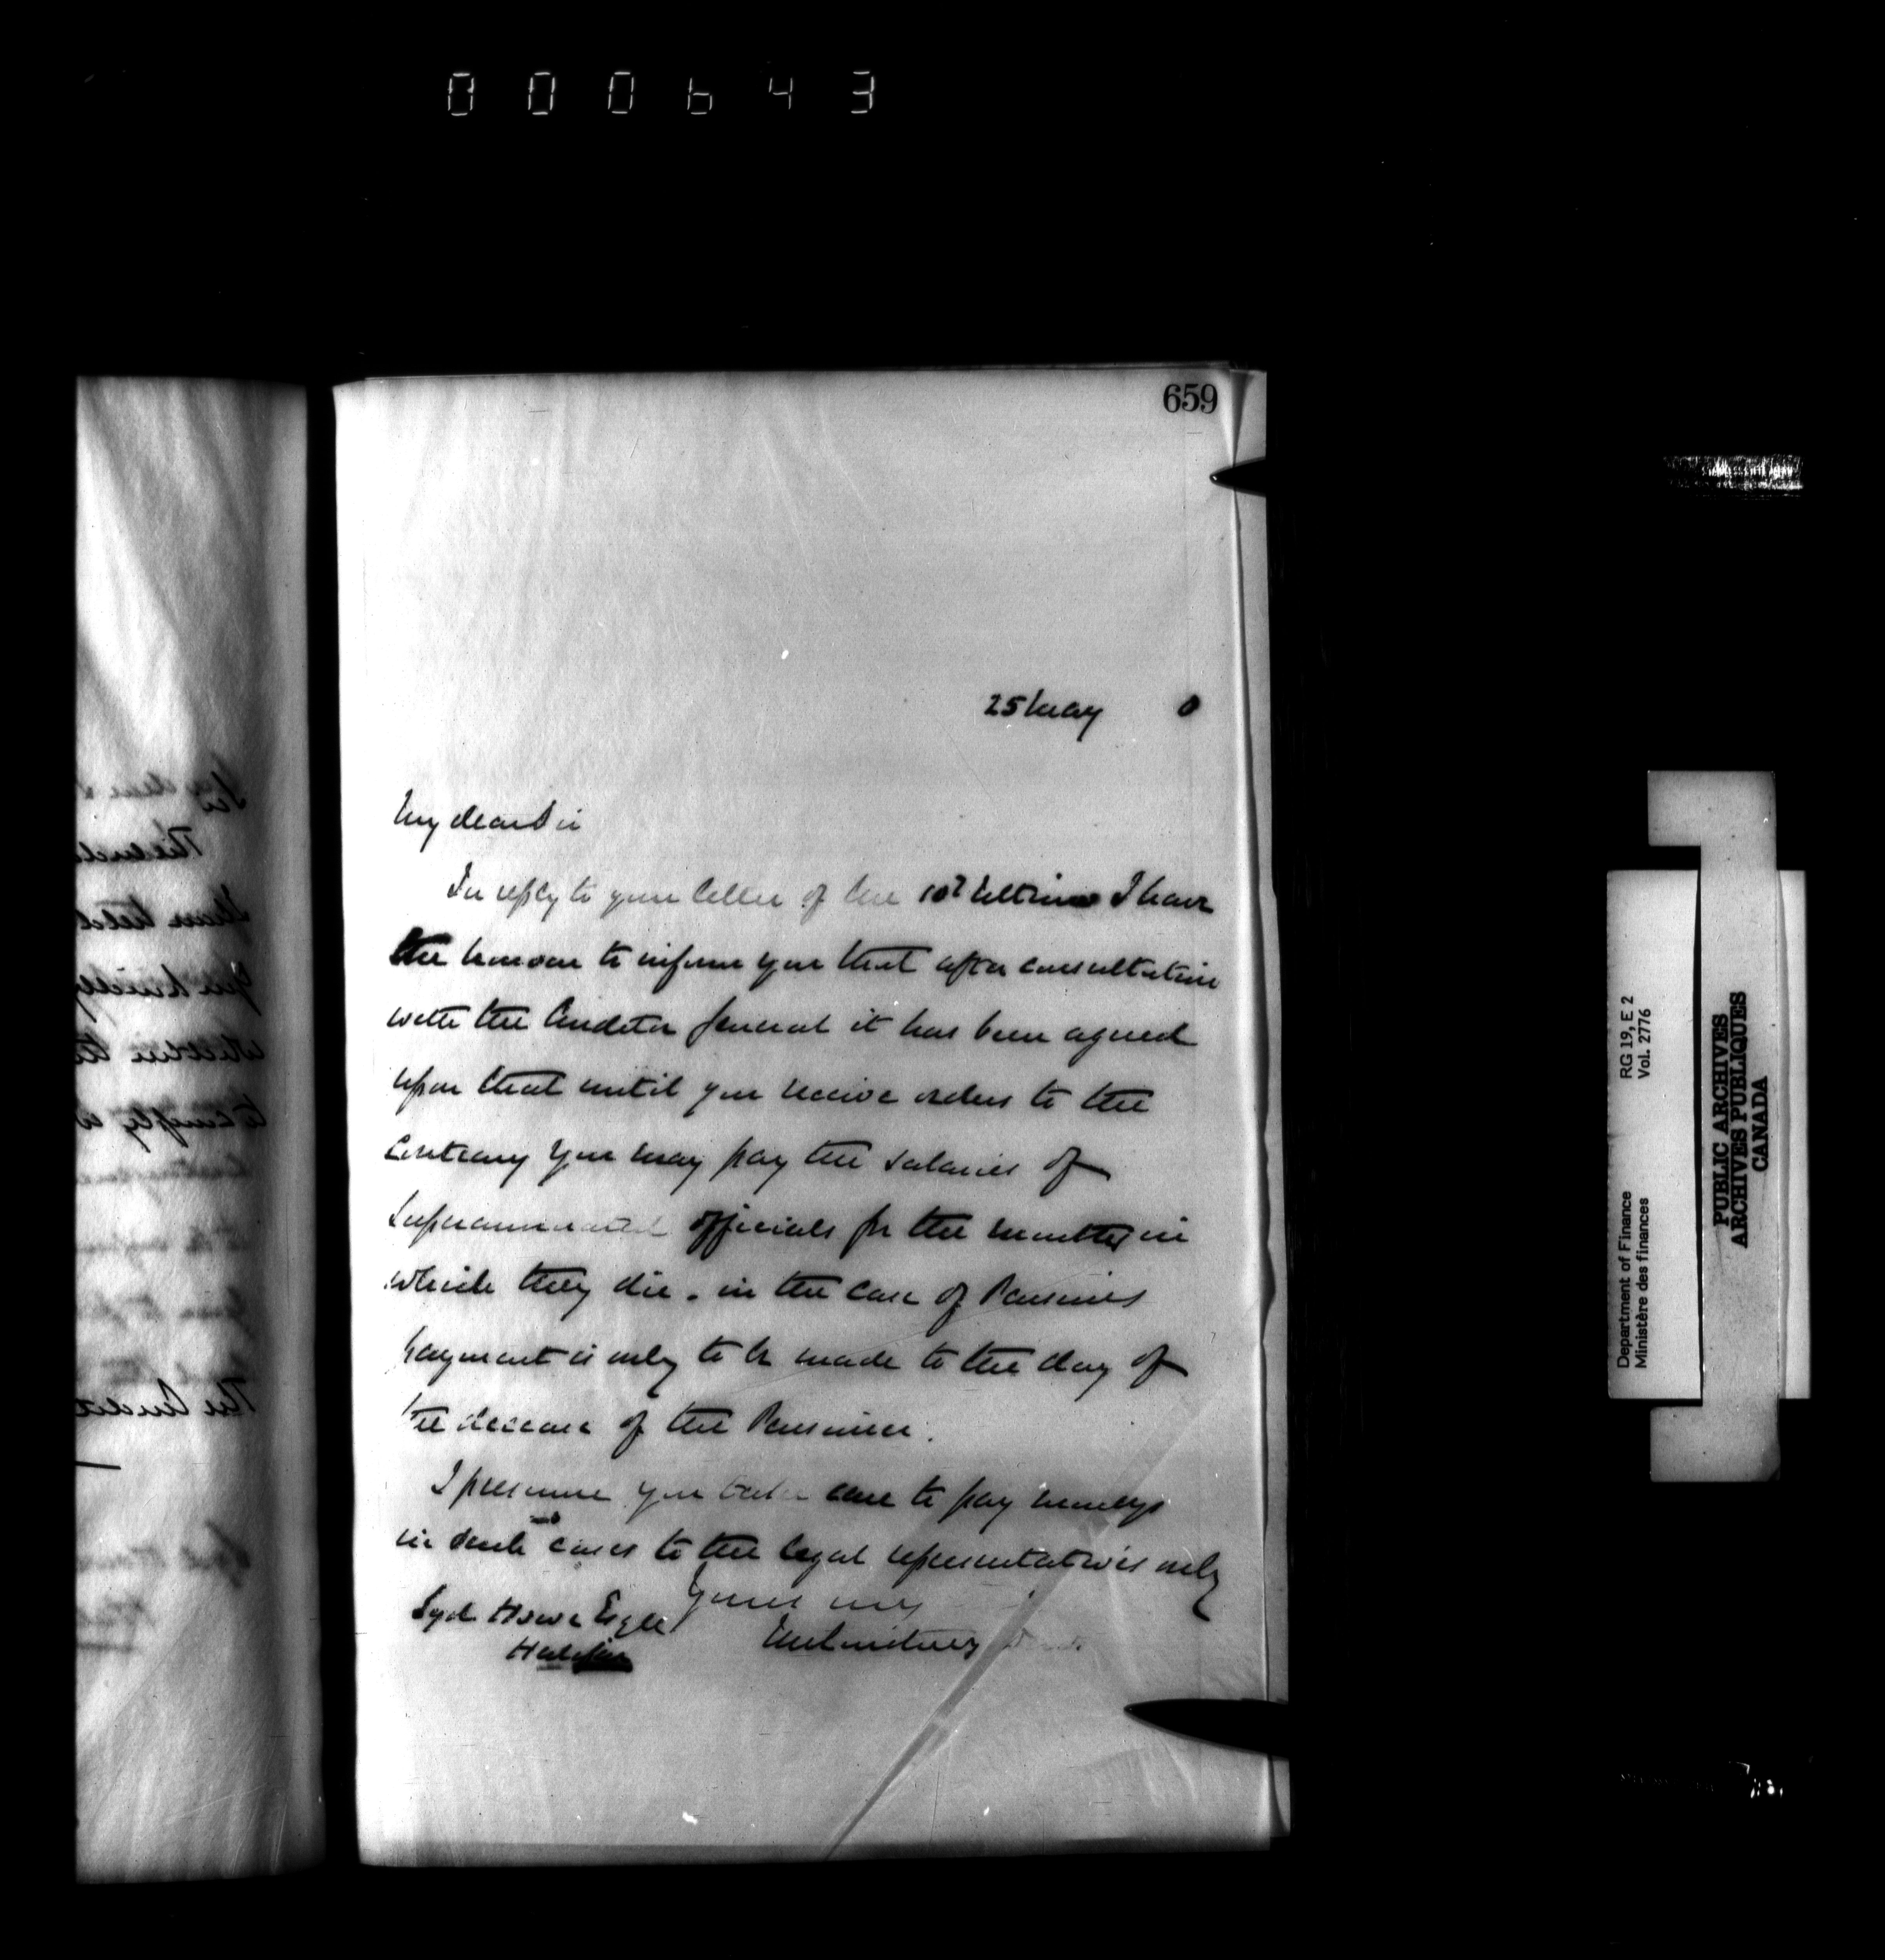 000643
659
25 May 0
My dear Sir
In reply to your letter of the 10th Ultimo I have
the honour to inform you that after consultation
with the Auditor General it has been agreed
upon that until you receive orders to the
contrary you may pay the salaries of
Superannuated officials for the month in
which they die. in the case of Pensions
payment is only to be made to the day of
the decease of the Pensioner.
I presume you take care to pay moneys
in such cases to the legal representatives only
Yours
Syd Howe Esqre
Halifax
Department of Finance RG 19, E 2
Ministère des finances Vol. 2776
PUBLIC ARCHIVES
ARCHIVES PUBLIQUES
CANADA